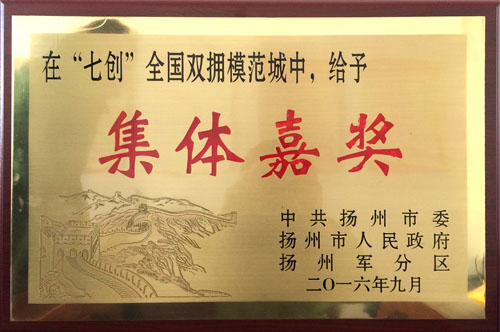 在“七创”全国双拥模范城中，给予
集体嘉奖
中共扬州市委
扬州市人民政府
扬州军分区
二〇一六年九月